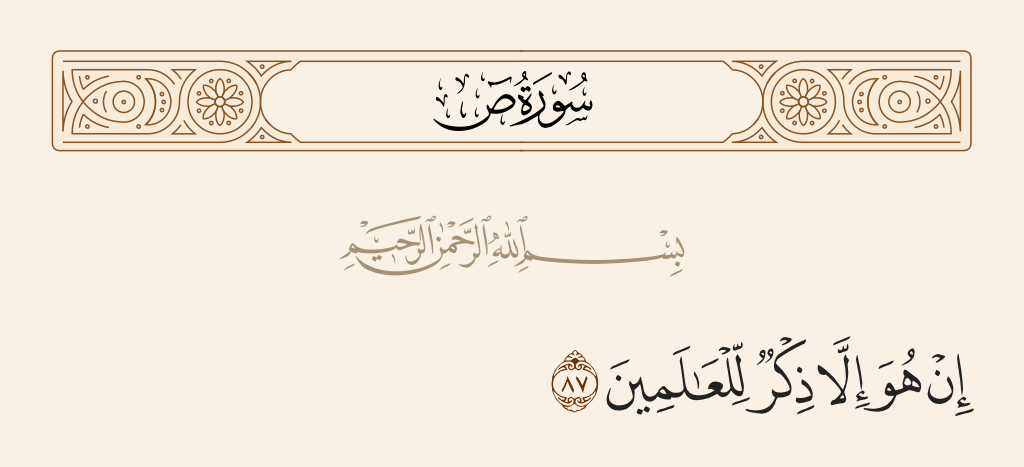 سُورَةُ صٓ
بِسْمِ ٱللَّهِ ٱلرَّحْمَٰنِ ٱلرَّحِيمِ
إِنْ هُوَ إِلَّا ذِكْرٌ لِّلْعَٰلَمِينَ ٨٧